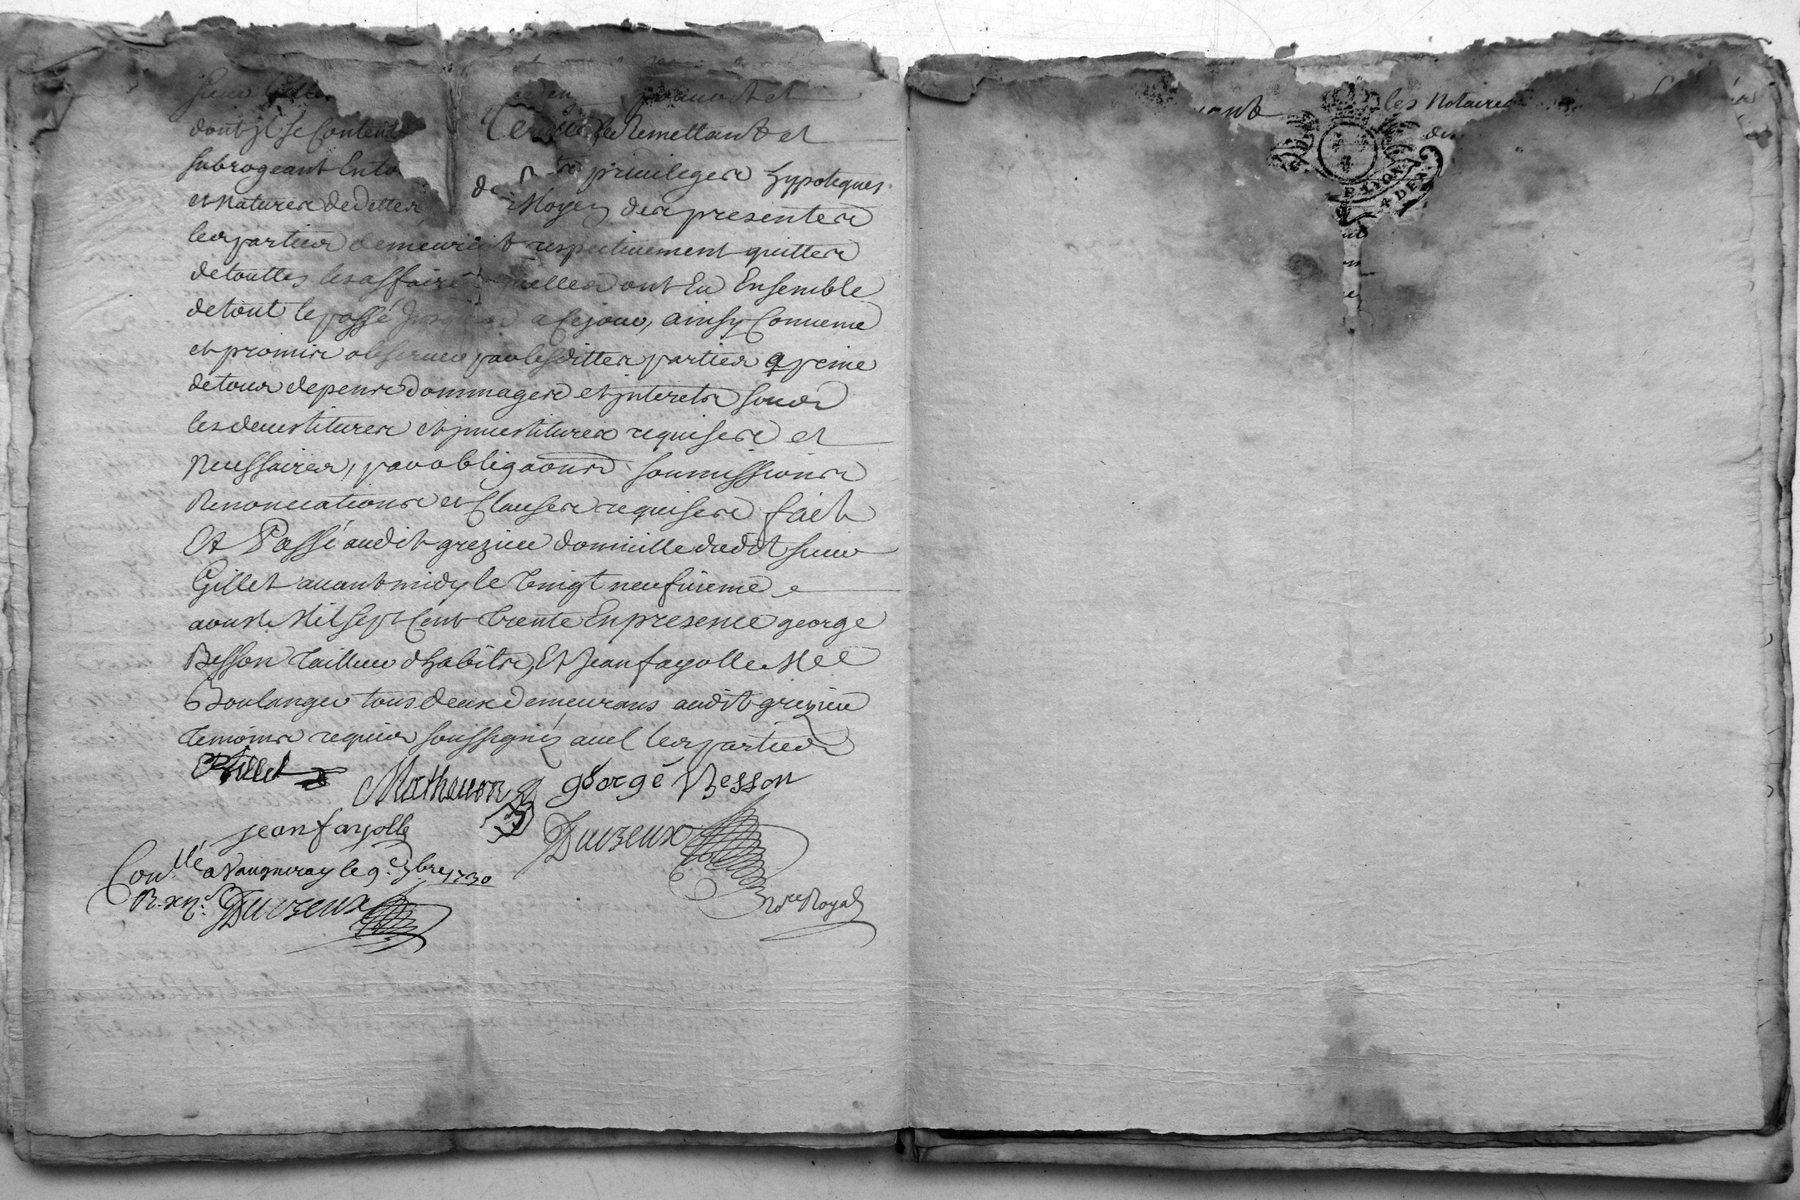 dont Il se Contente le Remettant et
subrogeant En privileges hypoteques
et natures de dettes Moyen des presentes
les parties demeurent respectivement quittes
de touttes les affaires quelles ont Eu Ensemble
de tout le passé Jusques a Ce jour, ainsy Convenu
et promis observer par lesdittes parties a peine
de tous depens dommages et interets sous
les devestitures et investitures requises et
Necessaires, par obligaons soumissions
Renonciations et Clauses requises fait
Et Passé audit grezieu domicille dudit sieur
Gillet avant midy le vingt neufvieme
aoust Mil sept Cent trente En presence george
Besson tailleur d'habits, Et Jean fayolle Me
Boulanger tous deux demeurans audit grezieu
temoins requis soussignés avec les parties
Gillet Matheuon george Besson
jean fayolle Duvzeux
Con.llé a Vaugneray le 9.e 7bre 1730
Duvzeux
No.re Royal
les Notaires